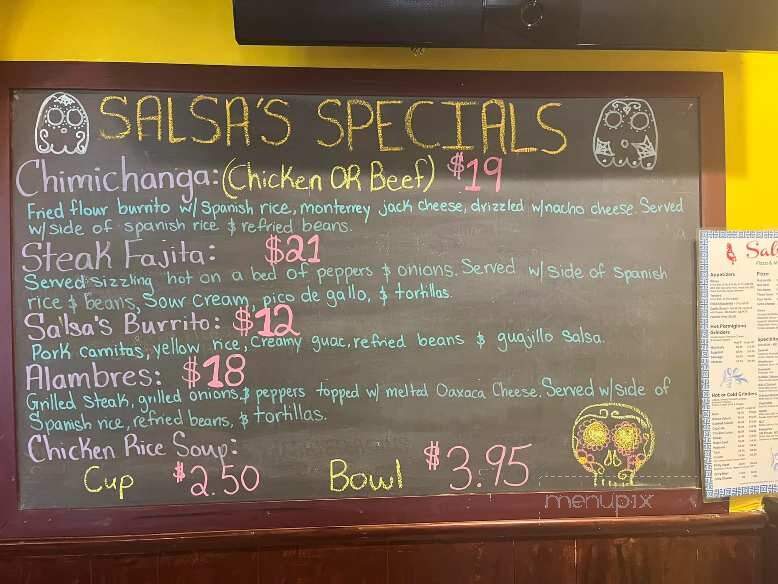 SALSA'S SPECIALS
Chimichanga: (Chicken OR Beef) $19
Fried flour burrito w/ Spanish rice, monterrey jack cheese, drizzled w/nacho cheese. Served
w/side of spanish rice & refried beans.
Steak Fajita: $21
Served sizzling hot on a bed of peppers & onions. Served w/ side of Spanish
rice & beans, Sour cream, pico de gallo, & tortillas.
Salsa's Burrito: $12
Pork carnitas, yellow rice, creamy guac, refried beans & guajillo salsa.
Alambres: $18
Grilled steak, grilled onions & peppers topped w/ melted Oaxaca Cheese. Served w/side of
Spanish rice, refried beans, & tortillas.
Chicken Rice Soup:
Cup $2.50 Bowl $3.95
menupix
Appetizers
Hot Parmigiana
Grinders
Hot or Cold Grinders